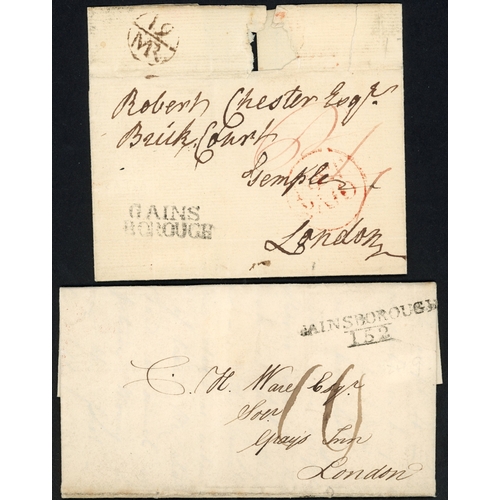 19
MR
Robert Chester Esqr.
Brick Court
Temple
London
GAINS
BOROUGH
GAINSBOROUGH
152
C. H. Ware Esqr
Solr
Grays Inn
London
10